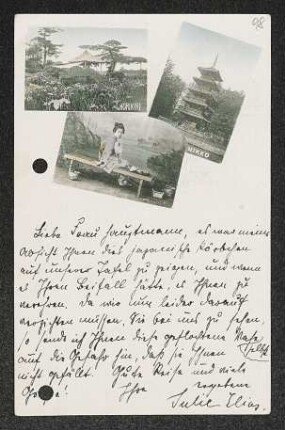 HORIKIRI
NIKKO
Liebe Frau Hauptmann, es war meine
Absicht Ihnen dies japanische Körbchen
auf unserer Tafel zu zeigen, und wenn
es Ihren Beifall hätte, es Ihnen zu
verehren. Da wir nun leider darauf
verzichten müssen, Sie bei uns zu sehen,
so sende ich Ihnen diese geflochtene
auf die Gefahr hin, daß sie Ihnen
nicht gefällt. Gute Reise und viele
Grüße! Ihre
ergebene
Julie Elias.